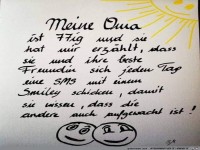 Meine Oma
ist 77ig und sie
hat mir erzählt, dass
sie und ihre beste
Freundin sich jeden Tag
eine SMS mit einem
Smiley schicken, damit
sie wissen, dass die
andere auch aufgewacht ist!